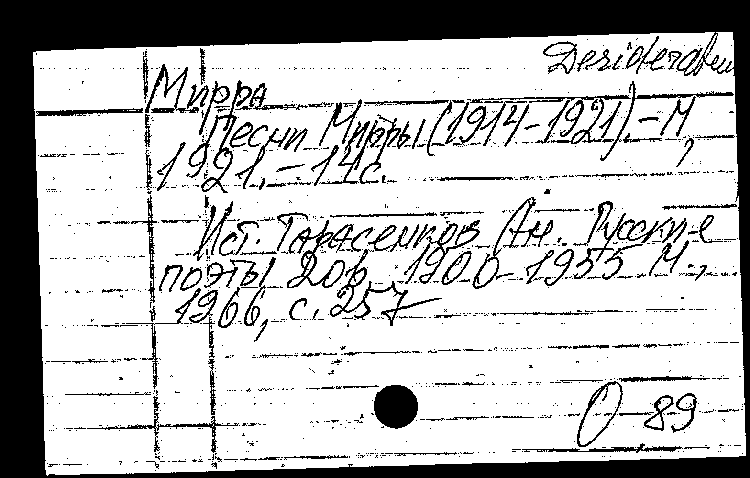 Desiderata
Мирра
Песни Мирры (1914-1921). - М,
1921. - 14 с.
Ист. Тарасенков Ан. Русские
поэты 20 в. 1900-1955 М.,
1966, с. 257
О-89